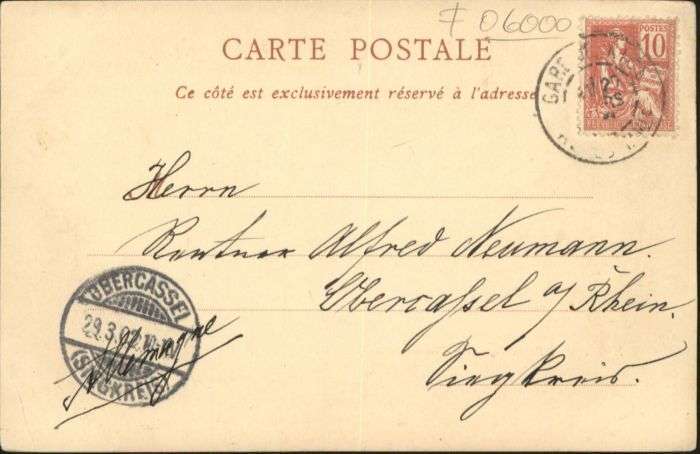 F 06000
CARTE POSTALE
Ce côté est exclusivement réservé à l'adresse
POSTES
10
GARE
Herrn
Rentner Alfred Neumann.
Obercassel a/ Rhein.
Siegkreis.
OBERCASSEL
29.3.02
(SIEGKREIS)
Allemagne